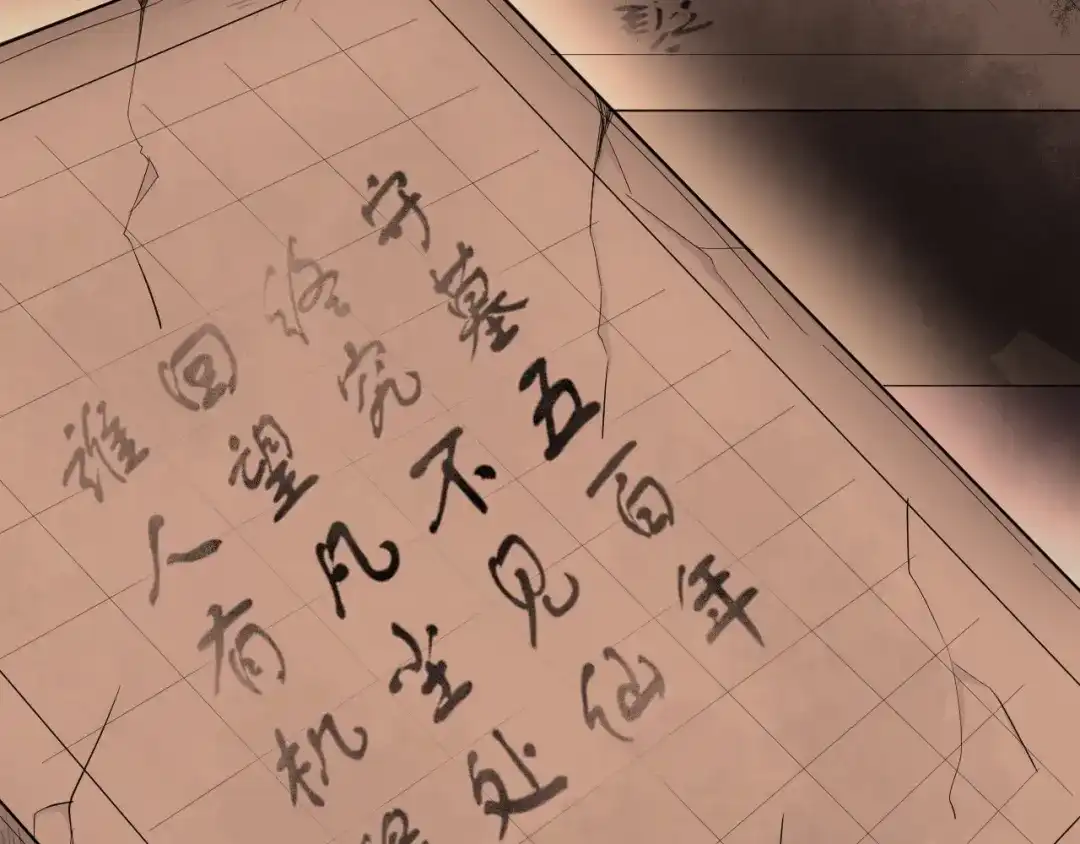 守墓五百年
终究不见仙
回望凡尘处
谁人有机